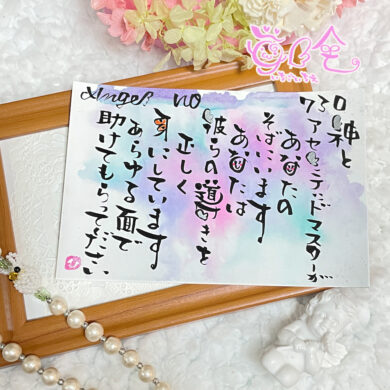 Angel no 730
神と
アセンティッドマスターが
あなたの
そばにいます
あなたは
彼らの導きを
正しく
耳にしています
あらゆる面で
助けてもらってください